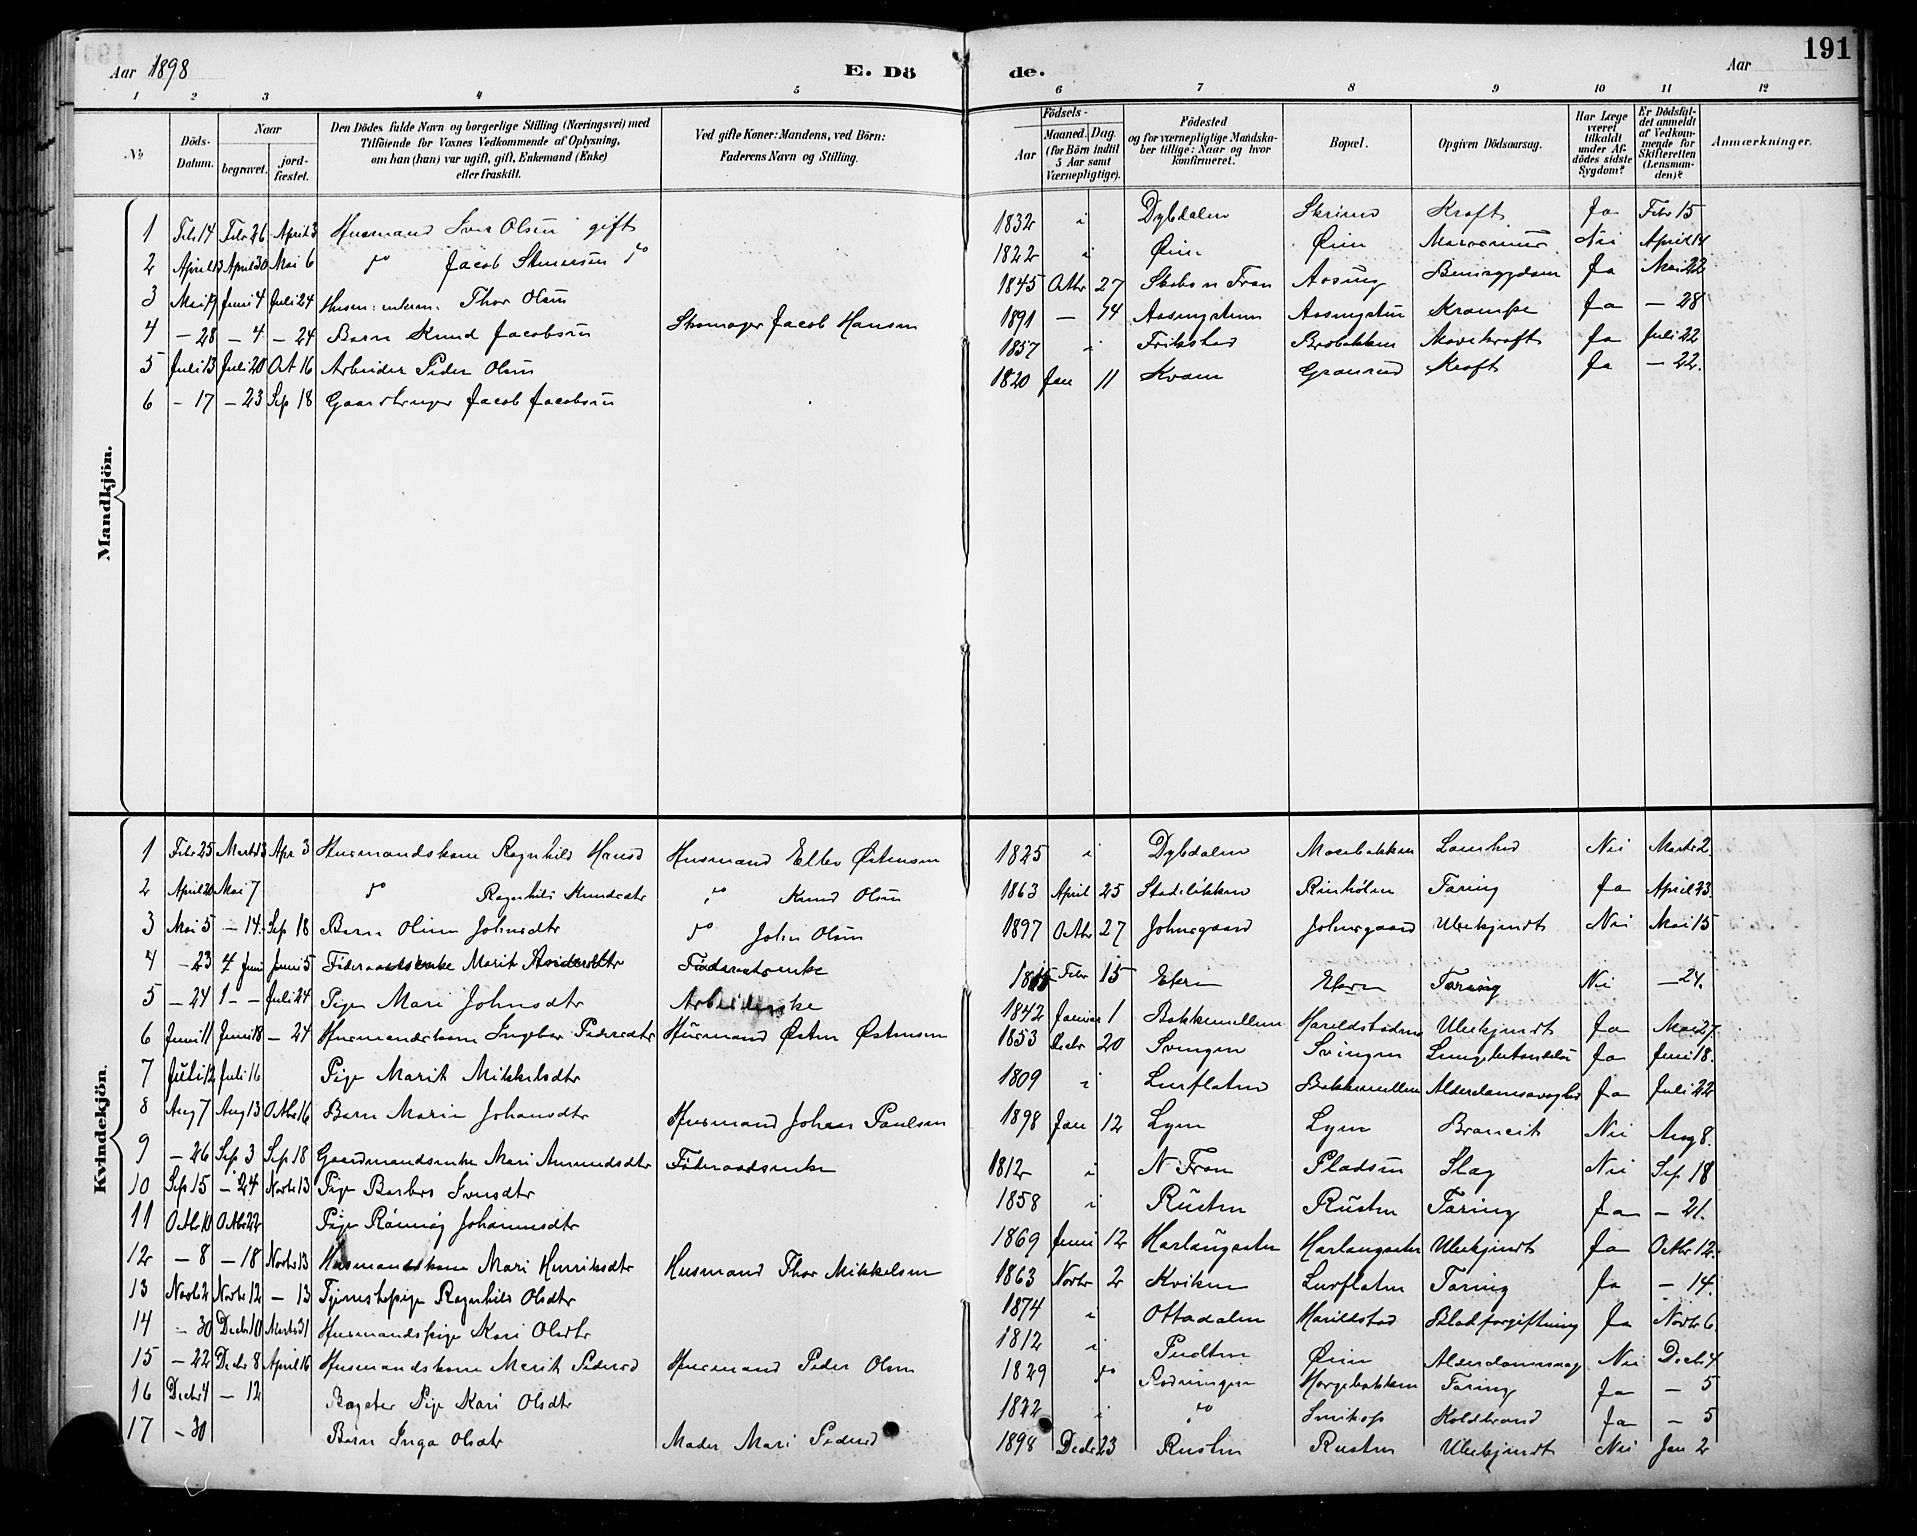 191
Aar 1898
E. Dö
de.
Aar
1 2 3 4 5 6 7 8 9 10 11 12
№
Döds-Datum.
Naar
begravet.
jord-fæstet.
Den Dödes fulde Navn og borgerlige Stilling (Næringsvei) med
Tilföiende for Voxnes Vedkommende af Oplysning,
om han (hun) var ugift, gift, Enkemand (Enke)
eller fraskilt.
Ved gifte Koner: Mandens, ved Börn:
Faderens Navn og Stilling.
Födsels-
Aar
Maaned. Dag.
(for Börn indtil
5 Aar samt
Værnepligtige).
Födested
og for værnepligtige Mandska-
ber tillige: Naar og hvor
konfirmeret.
Bopæl.
Opgiven Dödsaarsag.
Har Læge
været
tilkaldt
under Af-
dödes sidste
Sygdom?
Er Dödsfal-
det anmeldt
af Vedkom-
mende for
Skifteretten
(Lensman-
den)?
Anmærkninger.
Mandkjön.
1 Febr 14 Febr 26 April 3 Husmand Olsen gift 1832 i Dybdalen Kræft Ja Febr 15
2 April 13 April 30 Mai 6 do Jacob do 1822 i Øien Øien Nei April 14
3 Mai 19 Juni 4 Juli 24 Thor Olsen 1845 Octbr 27 Fron Ja Mai 22
4 – 28 – 4 – 24 Barn Knud Jacobsen Skomager Jacob Hansen 1891 – 14 Krampe Ja – 28
5 Juli 13 Juli 20 Oct 16 Arbeider Peder Olsen 1857 i Frikstad Brobakken Mavekræft Ja Juli 22
6 – 17 – 23 Sep 18 Jacob Jacobsen 1820 Jan 11 Kvam Kræft Ja – 22.
Kvindekjön.
1 Febr 25 Marts 13 Apr 3 Husmandskone Ragnhild Hansd Husmand Østensen 1825 i Dybdalen Mosebakken Lamhed Nei Marts 2.
2 April 20 Mai 7 do Ragnhild Knudsdtr " Knud Olsen 1863 April 25 Tæring Ja April 23
3 Mai 5 – 14. Sep 18 Barn Johnsdtr do John Olsen 1897 Octbr 27 Johnsgaard Johnsgaard Ubekjendt Nei Mai 15
4 – 23 4 Juni Juni 5 Föderaadsenke Marit Föderaadsenke Febr 15 Ekre Ekren Tæring Nei – 24.
5 – 24 1 – – Juli 24 Pige Mari Johnsdtr 1842 Januar 1 Bakkemellem Ubekjendt Ja Mai 27
6 Juni 11 Juni 18 – 24 Husmandskone Ingebor Pedersdtr Husmand Østen Østensen 1853 Decbr 20 Svingen Svingen Ja Juni 18.
7 Juli 12 Juli 16 Pige Marit Mikkelsdtr 1809 i Lurflaten Bakkemellem Ja Juli 22
8 Aug 7 Aug 13 Octbr 16 Barn Marie Johansdtr Husmand Johan Paulsen 1898 Jan 12 Lyen Lyen Nei Aug 8.
9 – 26 Sep 3 Sep 18 Gaardmandsenke Mari Amundsdtr Föderaadsenke 1812 i N Fron Pladsen Slag Nei Sep 18
10 Sep 15 – 24 Novbr 13 Pige Barbro Svensdtr 1858 i Rusten Rusten Tæring Ja – 21.
11 Octbr 10 Octbr 22 Pige Rönnög Johannesdtr 1869 Juni 12 Harlaugseter Harlaugseter Ubekjendt Ja Octbr 12.
12 – 8 – 18 Novbr 13 Husmandskone Mari Henriksdtr Husmand Thor Mikkelsen 1863 Novbr 2 Kviken Lurflaten Tæring Ja – 14.
13 Novbr 2 Novbr 12 – 13 Tjenestepige Ragnhild Olsdtr 1874 i Ottadalen Harildstad Blodforgiftning Ja Novbr 6.
14 – 30 Decbr 10 Marts 31 Husmandspige Kari Olsdtr 1812 i Øien Nei Decbr 4
15 – 22 Decbr 8 April 16 Husmandskone Marit Pedersd Husmand Peder Olsen 1829 do Tæring Ja – 5
16 Decbr 4 – 12 Pige Kari Olsdtr i do Koldbrand Ja – 5
17 – 30 Barn Inga Olsdtr Moder Mari Pedersd 1898 Decbr 23 Rusten Rusten Ubekjendt Nei Jan 2